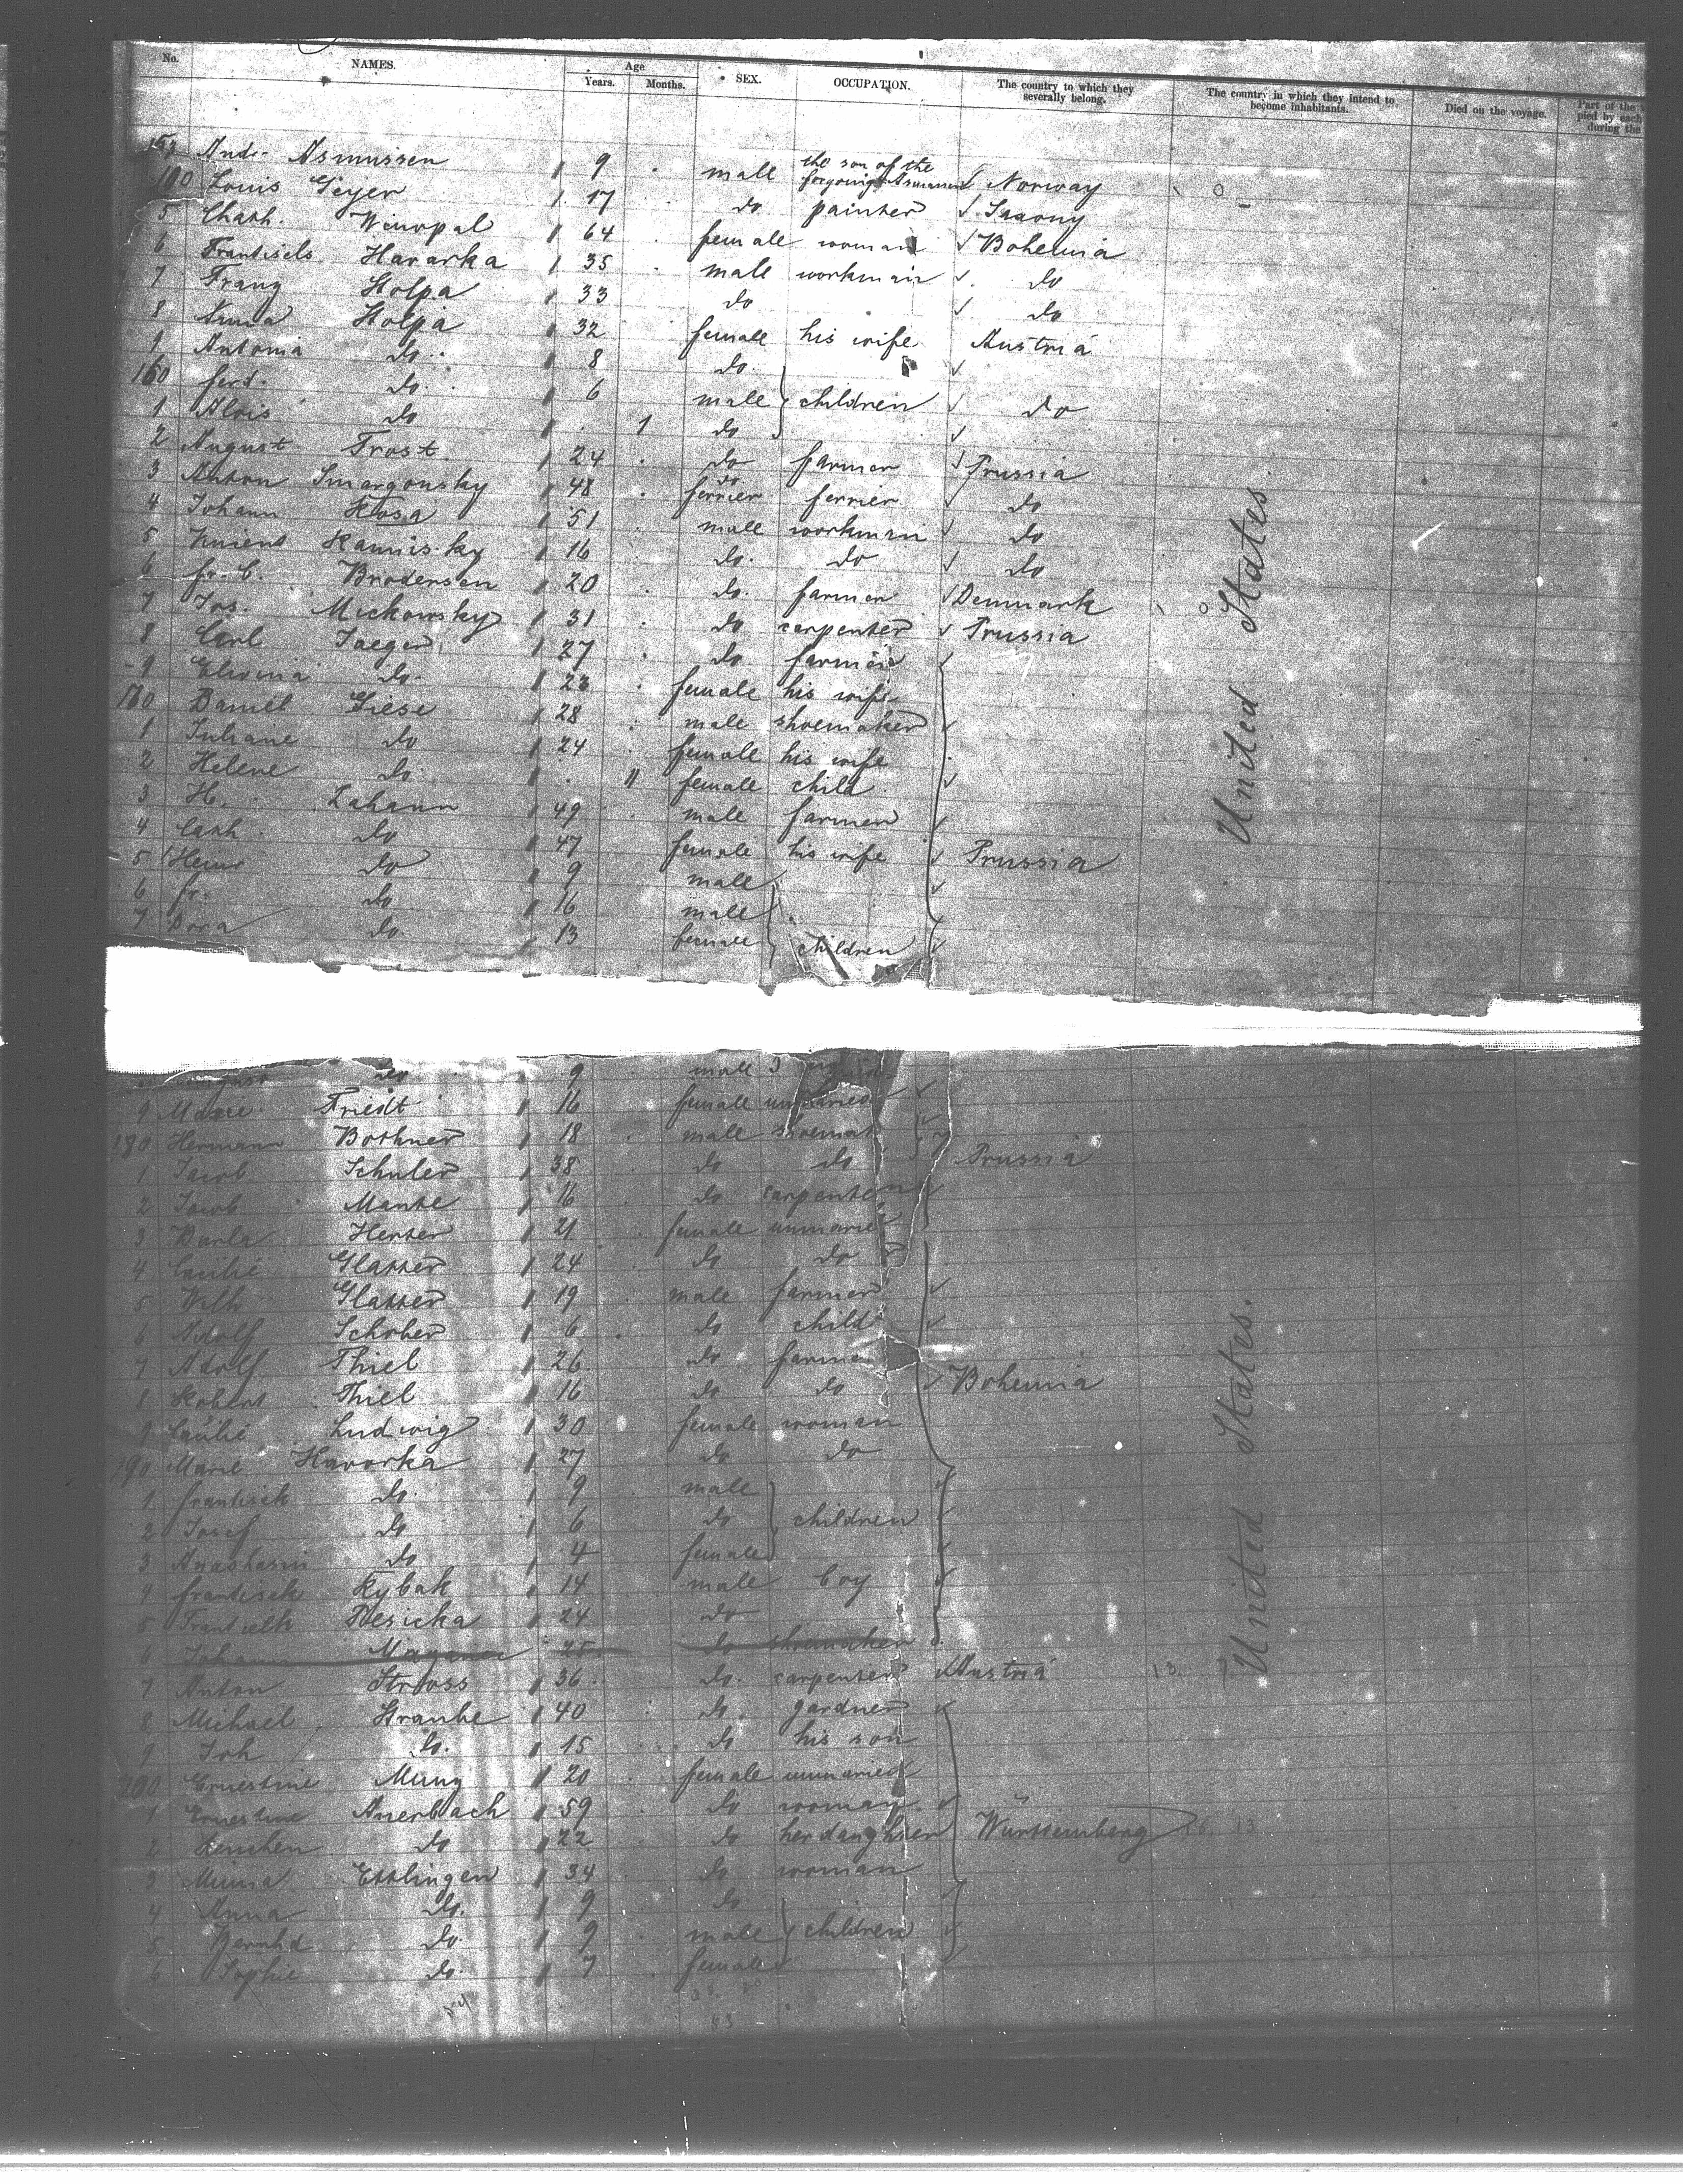 No. NAMES. Age Years. Months. SEX. OCCUPATION. The country to which they severally belong. The country in which they intend to become inhabitants. Died on the voyage. Part of the
pied by each
during the
153 And. Asmussen 9 male the son of the forgoing Asmussen Norway
Louis Geyer 17 do painter Saxony
5 Chath. 64 female woman Bohemia
6 Havarka 35 male workman do
7 Franz Holpa 33 do do
8 Anna Holpa 32 female his wife Austria
9 Antonia do. 8 do.
160 ferd. do. 6 male children do
1 Alois do 1 do
2 August Frost 24 do farmer Prussia
3 Anton Smargonsky 48 do ferrier ferrier do
4 Johann Kosa 51 male workman do
5 Kaminsky 16 do. do do
6 fr. C. Brodersen 20 do. farmer Denmark
7 Jos. Mickowsky 31 do carpenter Prussia
8 Carl Jaeger 27 do farmer
9 Elwina do. 23 female his wife
170 Daniel Giese 28 male shoemaker
1 Juliane do 24 female his wife
2 Helene do. 11 female child
3 H. Lahann 49 male farmer
4 Cath. do 47 female his wife Prussia
5 Heinr do 9 male
6 fr. do 16 male
7 Dora do. 13 female children
United States
do 9 male
9 Marie Friedt 16 female unmaried
180 Hermann Bothner 18 male shoemak
1 Jacob Schuler 38 do do Prussia
2 Jacob Manke 16 do carpenter
3 Herter 21 female unmaried
4 Glatter 24 do do
5 Wilh Glatter 19 male farmer
6 Adolf Schober 6 do child
7 Adolf Thiel 26 do farmer
8 Robert Thiel 16 do do Bohemia
9 Ludwig 30 female woman
190 Marie Havorka 27 do do
1 frantisek do. 9 male
2 Josef do 6 do children
3 do 4 female
4 frantisek Rybak 14 male boy
5 Resicka 24 do
6 Johann 25 do
7 Anton Stross 36 do. carpenter Austria
8 Michael Straube 40 do. gardner
9 Joh do. 15 do his son
200 Ernestine Munz 20 female unmaried
1 Ernestine Auerbach 59 do woman
2 do 22 do her daughter Württemberg
3 Minna Ettlingen 34 do woman
4 Anna do. 9 do
5 Bernhd do 9 male children
6 Sophie do. 7 female
United States.